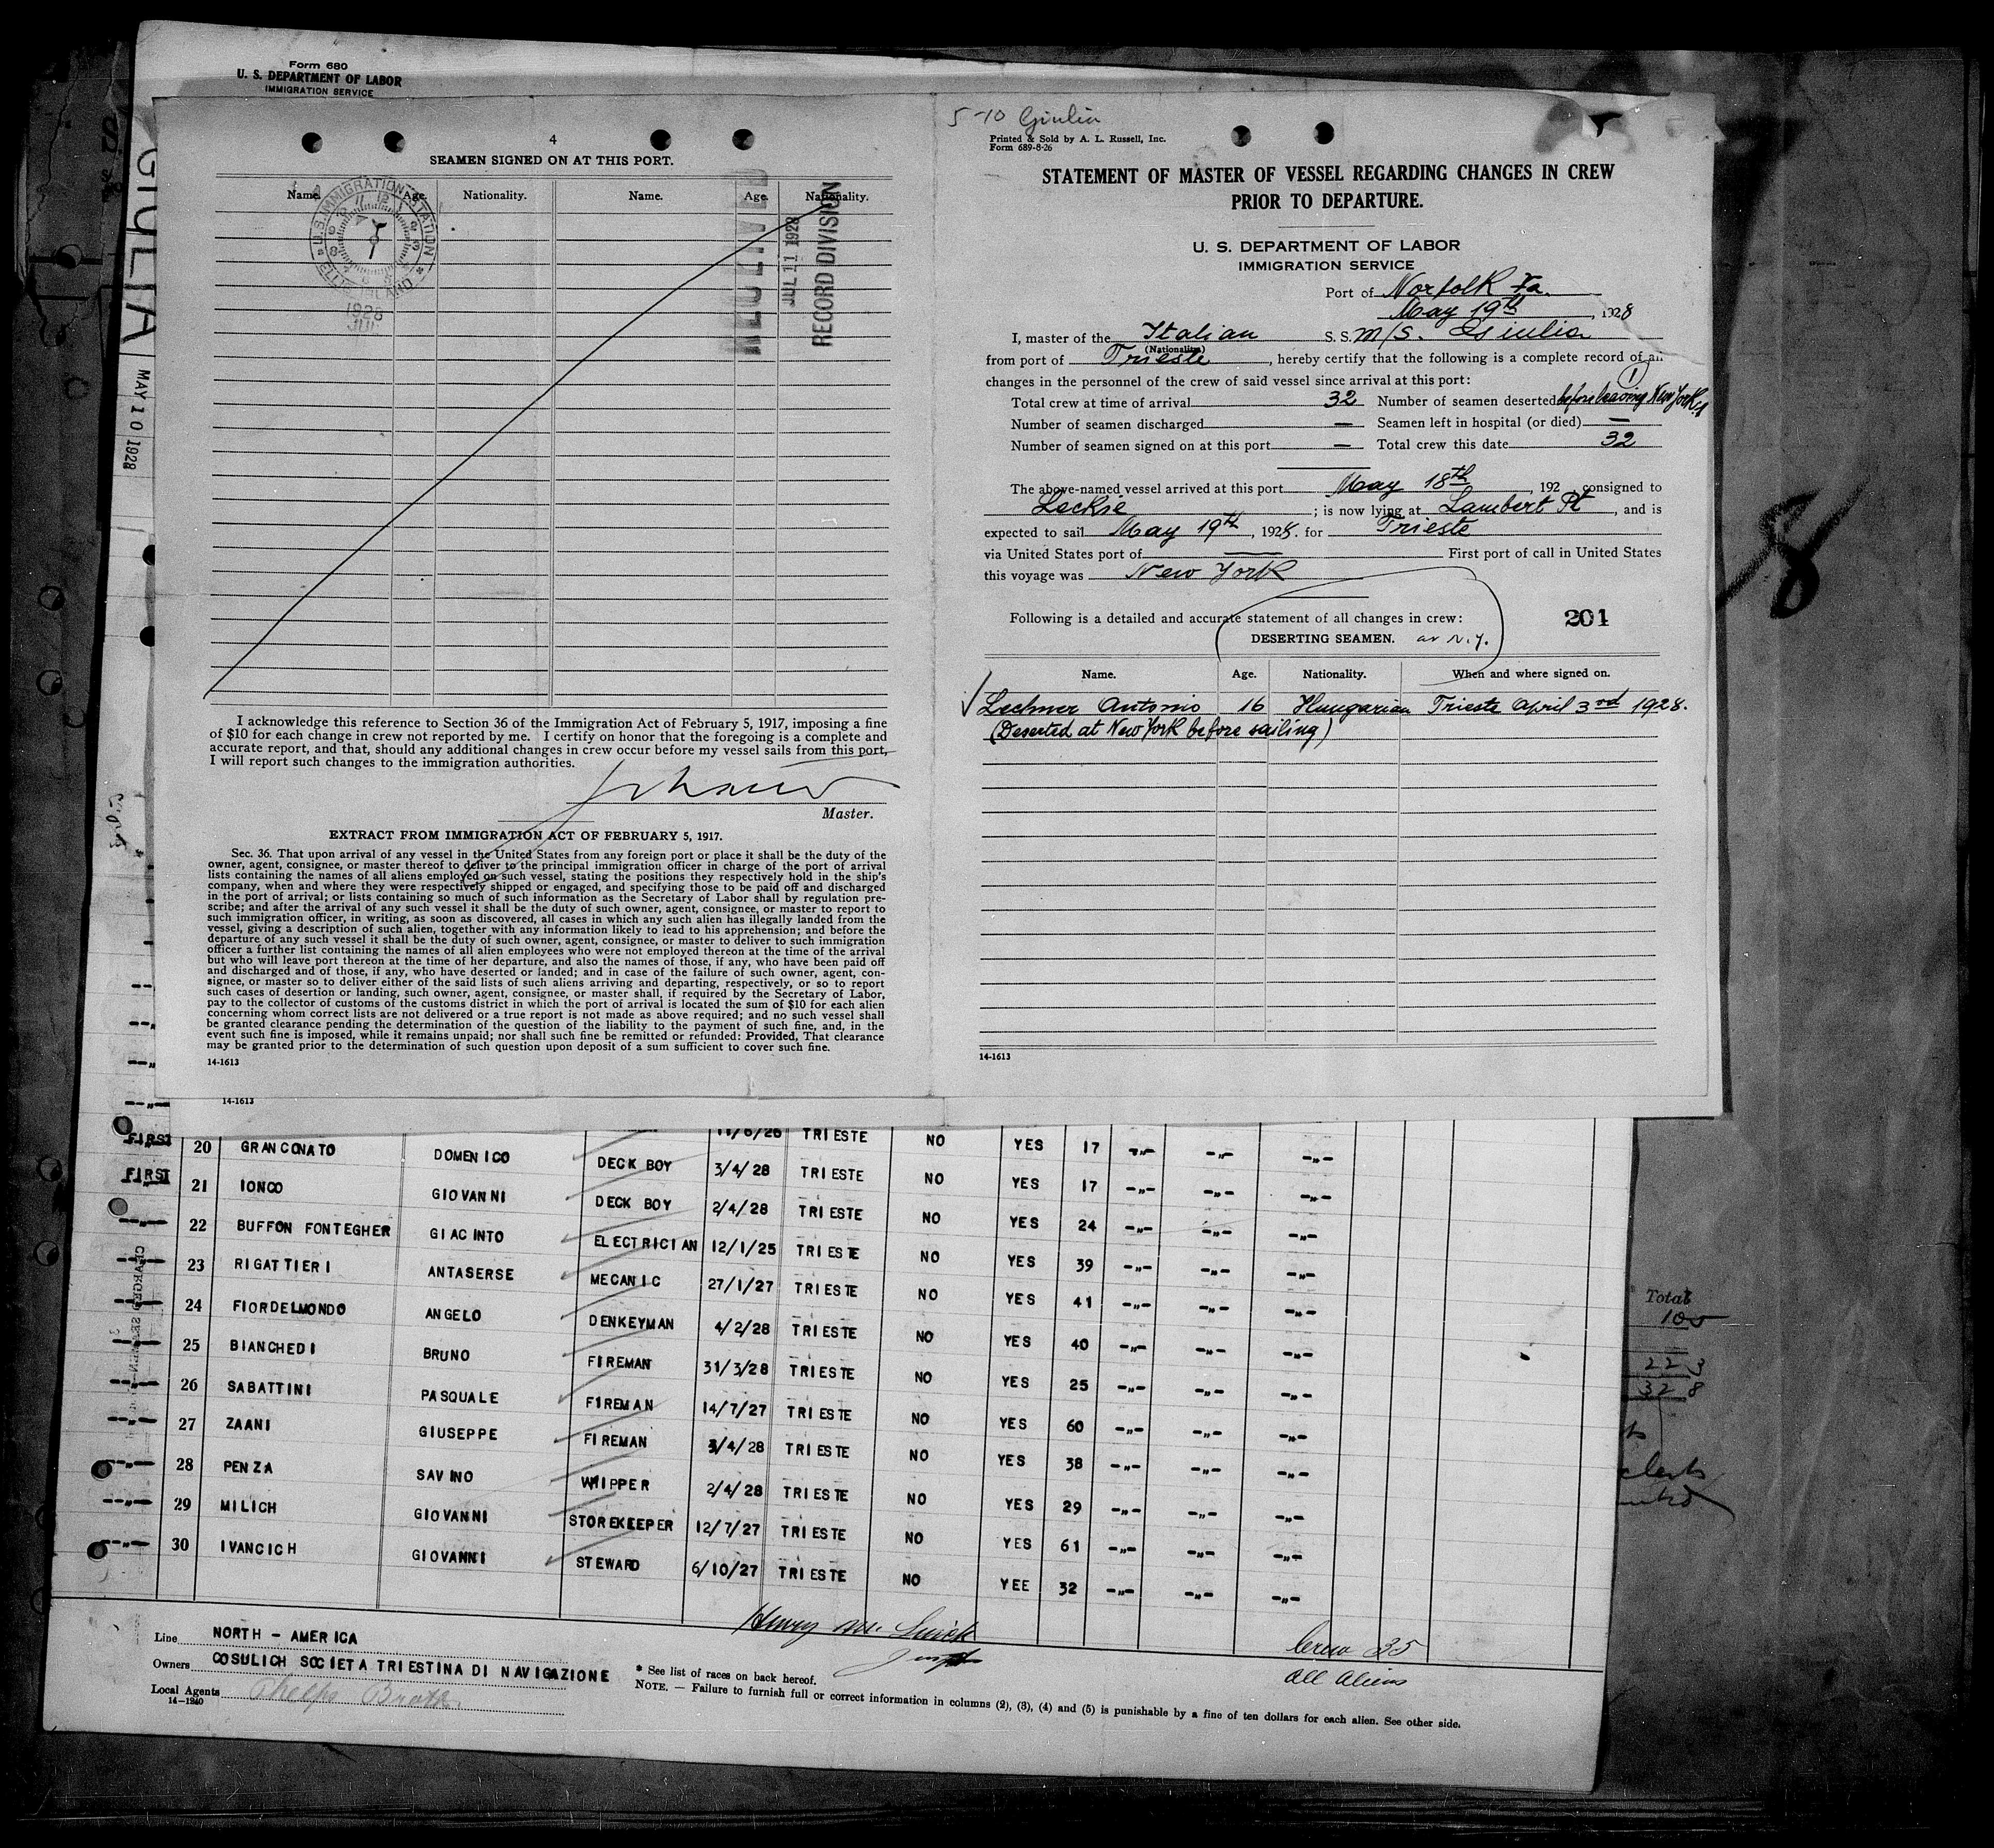 Form 680
U. S. DEPARTMENT OF LABOR
IMMIGRATION SERVICE
GIULIA
MAY 10 1928
4
SEAMEN SIGNED ON AT THIS PORT.
Name. Age. Nationality. Name. Age. Nationality.
U.S. IMMIGRATION STATION
ELLIS ISLAND
1928
RECEIVED
JUL 11 1928
RECORD DIVISION
I acknowledge this reference to Section 36 of the Immigration Act of February 5, 1917, imposing a fine
of $10 for each change in crew not reported by me. I certify on honor that the foregoing is a complete and
accurate report, and that, should any additional changes in crew occur before my vessel sails from this port,
I will report such changes to the immigration authorities.
Master.
EXTRACT FROM IMMIGRATION ACT OF FEBRUARY 5, 1917.
Sec. 36. That upon arrival of any vessel in the United States from any foreign port or place it shall be the duty of the
owner, agent, consignee, or master thereof to deliver to the principal immigration officer in charge of the port of arrival
lists containing the names of all aliens employed on such vessel, stating the positions they respectively hold in the ship's
company, when and where they were respectively shipped or engaged, and specifying those to be paid off and discharged
in the port of arrival; or lists containing so much of such information as the Secretary of Labor shall by regulation pre-
scribe; and after the arrival of any such vessel it shall be the duty of such owner, agent, consignee, or master to report to
such immigration officer, in writing, as soon as discovered, all cases in which any such alien has illegally landed from the
vessel, giving a description of such alien, together with any information likely to lead to his apprehension; and before the
departure of any such vessel it shall be the duty of such owner, agent, consignee, or master to deliver to such immigration
officer a further list containing the names of all alien employees who were not employed thereon at the time of the arrival
but who will leave port thereon at the time of her departure, and also the names of those, if any, who have been paid off
and discharged and of those, if any, who have deserted or landed; and in case of the failure of such owner, agent, con-
signee, or master so to deliver either of the said lists of such aliens arriving and departing, respectively, or so to report
such cases of desertion or landing, such owner, agent, consignee, or master shall, if required by the Secretary of Labor,
pay to the collector of customs of the customs district in which the port of arrival is located the sum of $10 for each alien
concerning whom correct lists are not delivered or a true report is not made as above required; and no such vessel shall
be granted clearance pending the determination of the question of the liability to the payment of such fine, and, in the
event such fine is imposed, while it remains unpaid; nor shall such fine be remitted or refunded: Provided, That clearance
may be granted prior to the determination of such question upon deposit of a sum sufficient to cover such fine.
14-1613
14-1613
5-10 Giulia
Printed & Sold by A. L. Russell, Inc.
Form 689-8-26
STATEMENT OF MASTER OF VESSEL REGARDING CHANGES IN CREW
PRIOR TO DEPARTURE.
U. S. DEPARTMENT OF LABOR
IMMIGRATION SERVICE
Port of Norfolk Va.
May 19th, 1928
I, master of the Italian S. S. M/S. Giulia
(Nationality)
from port of Trieste, hereby certify that the following is a complete record of all
changes in the personnel of the crew of said vessel since arrival at this port:
Total crew at time of arrival 32 Number of seamen deserted before leaving New York 1
Number of seamen discharged — Seamen left in hospital (or died) —
Number of seamen signed on at this port — Total crew this date 32
The above-named vessel arrived at this port May 18th, 192 , consigned to
Leckie; is now lying at Lambert Pt, and is
expected to sail May 19th, 1928. for Trieste
via United States port of — First port of call in United States
this voyage was New York
Following is a detailed and accurate statement of all changes in crew:
201
DESERTING SEAMEN. at N.Y.
Name. Age. Nationality. When and where signed on.
Lechner Antonio 16 Hungarian Trieste April 3rd 1928.
(Deserted at New York before sailing)
14-1613
8
11/6/26 TRIESTE
FIRST 20 GRANCONATO DOMENICO DECK BOY 3/4/28 TRIESTE NO YES 17 -"- -"- -"-
FIRST 21 IONCO GIOVANNI DECK BOY 2/4/28 TRIESTE NO YES 17 -"- -"- -"-
--"-- 22 BUFFON FONTEGHER GIACINTO ELECTRICIAN 12/1/25 TRIESTE NO YES 24 -"- -"- -"-
--"-- 23 RIGATTIERI ANTASERSE MECANIC 27/1/27 TRIESTE NO YES 39 -"- -"- -"-
--"-- 24 FIORDELMONDO ANGELO DENKEYMAN 4/2/28 TRIESTE NO YES 41 -"- -"- -"-
--"-- 25 BIANCHEDI BRUNO FIREMAN 31/3/28 TRIESTE NO YES 40 -"- -"- -"-
--"-- 26 SABATTINI PASQUALE FIREMAN 14/7/27 TRIESTE NO YES 25 -"- -"- -"-
--"-- 27 ZAANI GIUSEPPE FIREMAN 3/4/28 TRIESTE NO YES 60 -"- -"- -"-
--"-- 28 PENZA SAVINO WIPPER 2/4/28 TRIESTE NO YES 38 -"- -"- -"-
--"-- 29 MILICH GIOVANNI STOREKEEPER 12/7/27 TRIESTE NO YES 29 -"- -"- -"-
--"-- 30 IVANCICH GIOVANNI STEWARD 6/10/27 TRIESTE NO YES 61 -"- -"- -"-
NO YEE 32 -"- -"- -"-
Total
105
223
328
Line NORTH - AMERICA
Owners COSULICH SOCIETA TRIESTINA DI NAVIGAZIONE
Local Agents Phelps Broth.
14-1240
Henry
* See list of races on back hereof.
NOTE. — Failure to furnish full or correct information in columns (2), (3), (4) and (5) is punishable by a fine of ten dollars for each alien. See other side.
Crew 35
All Aliens